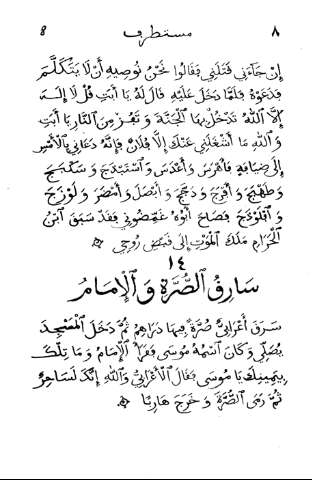 ٨ مستطرف 8
إِنْ جَاءَنِي قَتَلَنِي فَقَالُوا نَحْنُ نُوصِيهِ أَنْ لَا يَتَكَلَّمَ
فَدَعَوْهُ فَلَمَّا دَخَلَ عَلَيْهِ قَالَ لَهُ يَا أَبَتِ قُلْ لَا إِلَهَ
إِلَّا ٱللّٰهُ تَدْخُلْ بِهَا ٱلْجَنَّةَ وَ تَفُزْ مِنَ ٱلنَّارِ يَا أَبَتِ
وَٱللّٰهِ مَا أَشْغَلَنِي عَنْكَ إِلَّا فُلَانٌ فَإِنَّهُ دَعَانِي بِٱلْأَمْسِ
إِلَى ضِيَافَةٍ فَأَهْرَسَ وَ أَعْدَسَ وَ ٱسْتَبْذَجَ وَ سَكْبَجَ
وَ طَهْبَجَ وَ أَفْرَجَ وَ دَجَّجَ وَ أَبْصَلَ وَ أَمْضَرَ وَ لَوْزَجَ
وَ ٱفْلَوْذَجَ فَصَاحَ أَبُوهُ غَمِّضُونِي فَقَدْ سَبَقَ ٱبْنُ
ٱلْحَرَامِ مَلَكَ ٱلْمَوْتِ إِلَى قَبْضِ رُوحِي
١٤
سَارِقُ ٱلصُّرَّةِ وَ ٱلْإِمَامُ
سَرَقَ أَعْرَابِيٌّ صُرَّةً فِيهَا دَرَاهِمُ ثُمَّ دَخَلَ ٱلْمَسْجِدَ
يُصَلِّي وَ كَانَ ٱسْمُهُ مُوسَى فَقَرَأَ ٱلْإِمَامُ وَ مَا تِلْكَ
بِيَمِينِكَ يَا مُوسَى فَقَالَ ٱلْأَعْرَابِيُّ وَٱللّٰهِ إِنَّكَ لَسَاحِرٌ
ثُمَّ رَمَى ٱلصُّرَّةَ وَ خَرَجَ هَارِبًا